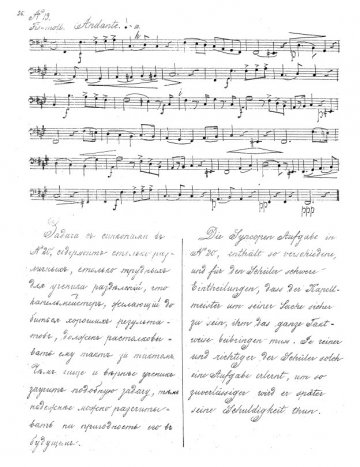 26.
№ 19.
Andante.
ppp
ppp
Задача съ синкопами въ
№ 20, содержитъ столько раз-
личныхъ, столько трудныхъ
для ученика раздѣленій, что
капельмейстеръ, желающій до-
биться хорошихъ результа-
товъ, долженъ растолковы-
вать ему тактъ за тактомъ.
Чѣмъ и вѣрнѣе ученикъ
заучитъ подобную задачу, тѣмъ
надежнѣе можно разсчиты-
вать на пригодность его въ
будущемъ.
Die Syncopen Aufgabe in
№ 20, enthält so verschiedene,
und für den Schüler schwere
Eintheilungen, dass der Kapell-
meister um seiner Sache sicher
zu sein, ihm das ganze Takt-
weise beibringen muss. Je reiner
und richtiger der Schüler solch
eine Aufgabe erlernt, um so
zuverlässiger wird er später
seine Schuldigkeit thun.